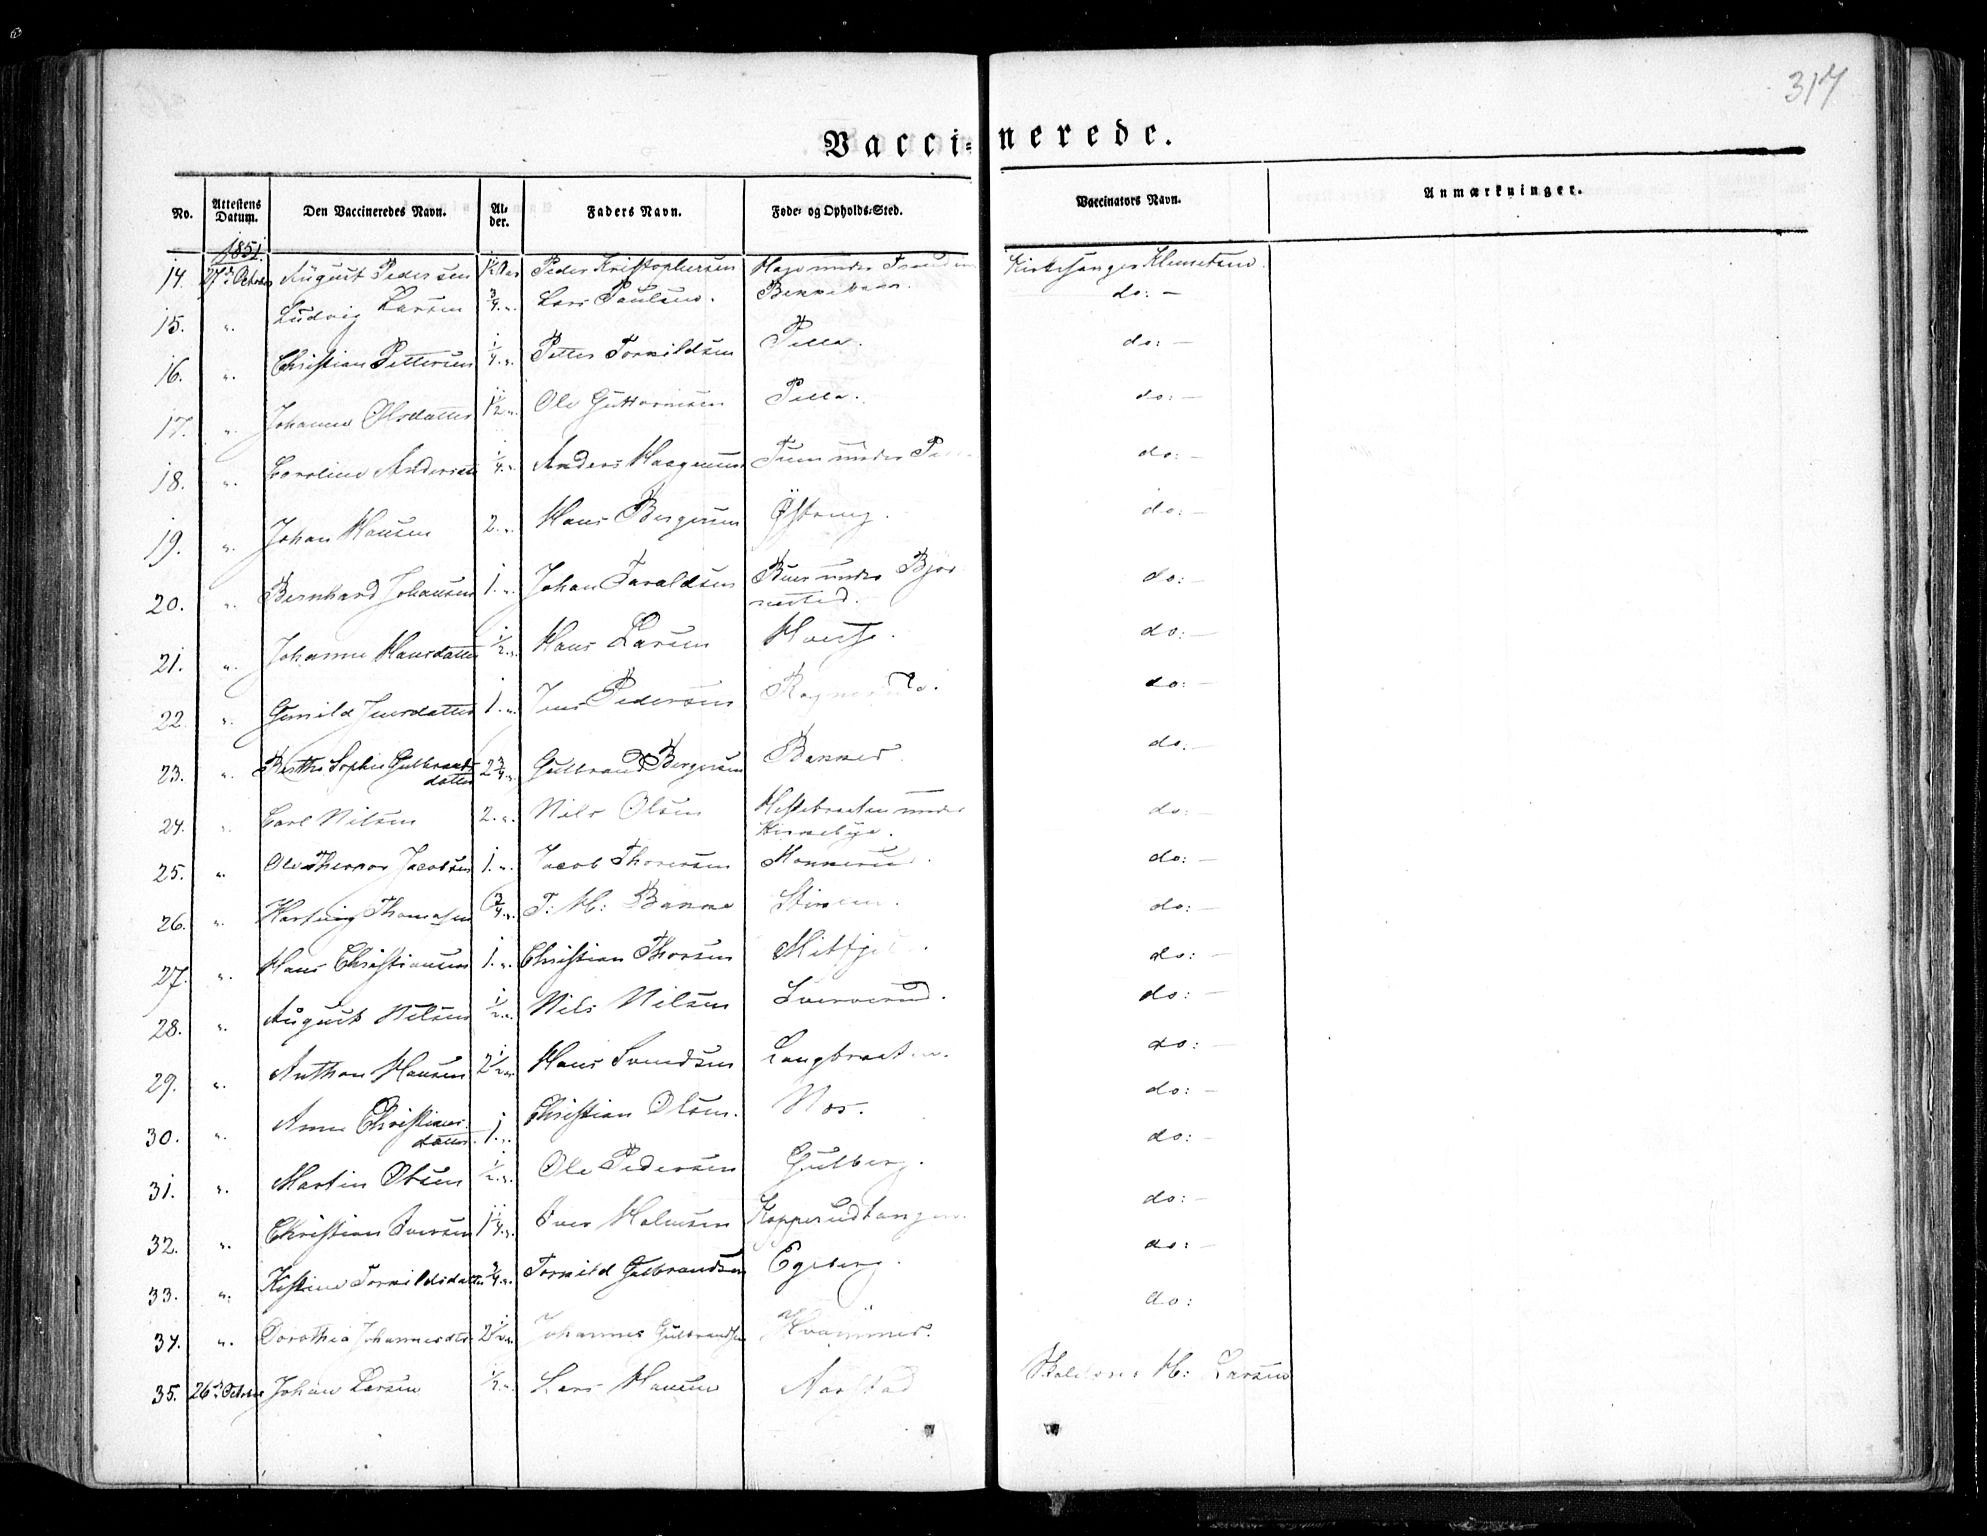 317
Vaccinerede.
No. Attestens Datum. Den Vaccineredes Navn. Alder. Faders Navn. Føde- og Opholds-Sted. Vaccinators Navn. Anmærkninger.
1851.
14. August Pedersen 1½ Peder Kristophersen under Kirkesanger Klemetsen.
15. " Ludvig Larsen ¾ " Lars Paulsen. do: -
16. " Christian Pettersen ¼ " Petter Tornildsen Pella. do: -
17. " Johanne Olsdatter 1½ " Ole Guttormsen Pella. do: -
18. " Caroline Andersdt ¼ " Anders Haagensen under do: -
19. " Johan Hansen 2. " Hans Bergersen Østeng. do: -
20. " Bernhard Johansen 1. " Johan Taraldsen Buer under Bjør- do: -
nestad.
21. " Johanne Hansdatter ½ " Hans Larsen do: -
22. " Gunild Jensdatter 1. " Jens Pedersen do: -
23. " Berthe Sophie Gulbrands- 2¾ " Gulbrand Bergersen Bakker. do: -
datter
24. " Carl Nilsen 2. " Nils Olsen Hestebraaten under do: -
Kirkebye.
25. " Ole Jacobsen 1. " Jacob Thoresen do: -
26. " Hartvig Thomasen ¾ " T: H: Bakke do: -
27. " Hans Christiansen 1. " Christian Thorsen do: -
28. " August Nilsen ½ " Nils Nilsen Sververud. do: -
29. " Anthon Hansen 2½ " Hans Svendsen Langbraaten. do: -
30. " Anne Christians- 1. " Christian Olsen. Nos. do: -
datter.
31. " Martin Olsen ½ " Ole Pedersen Gulberg. do: -
32. " Christian Iversen 1¼ " Iver Halvorsen Kopperudtangen. do: -
33. " Kistine Tornildsdatter ¾ " Tornild Gulbrandsen Egeberg. do: -
34. " Dorothea Johannesdtr 2½ " Johannes Gulbrandsen Hvammer. do:
35. 26de October Johan Larsen ½ " Lars Hansen Aarstad H: Larsen